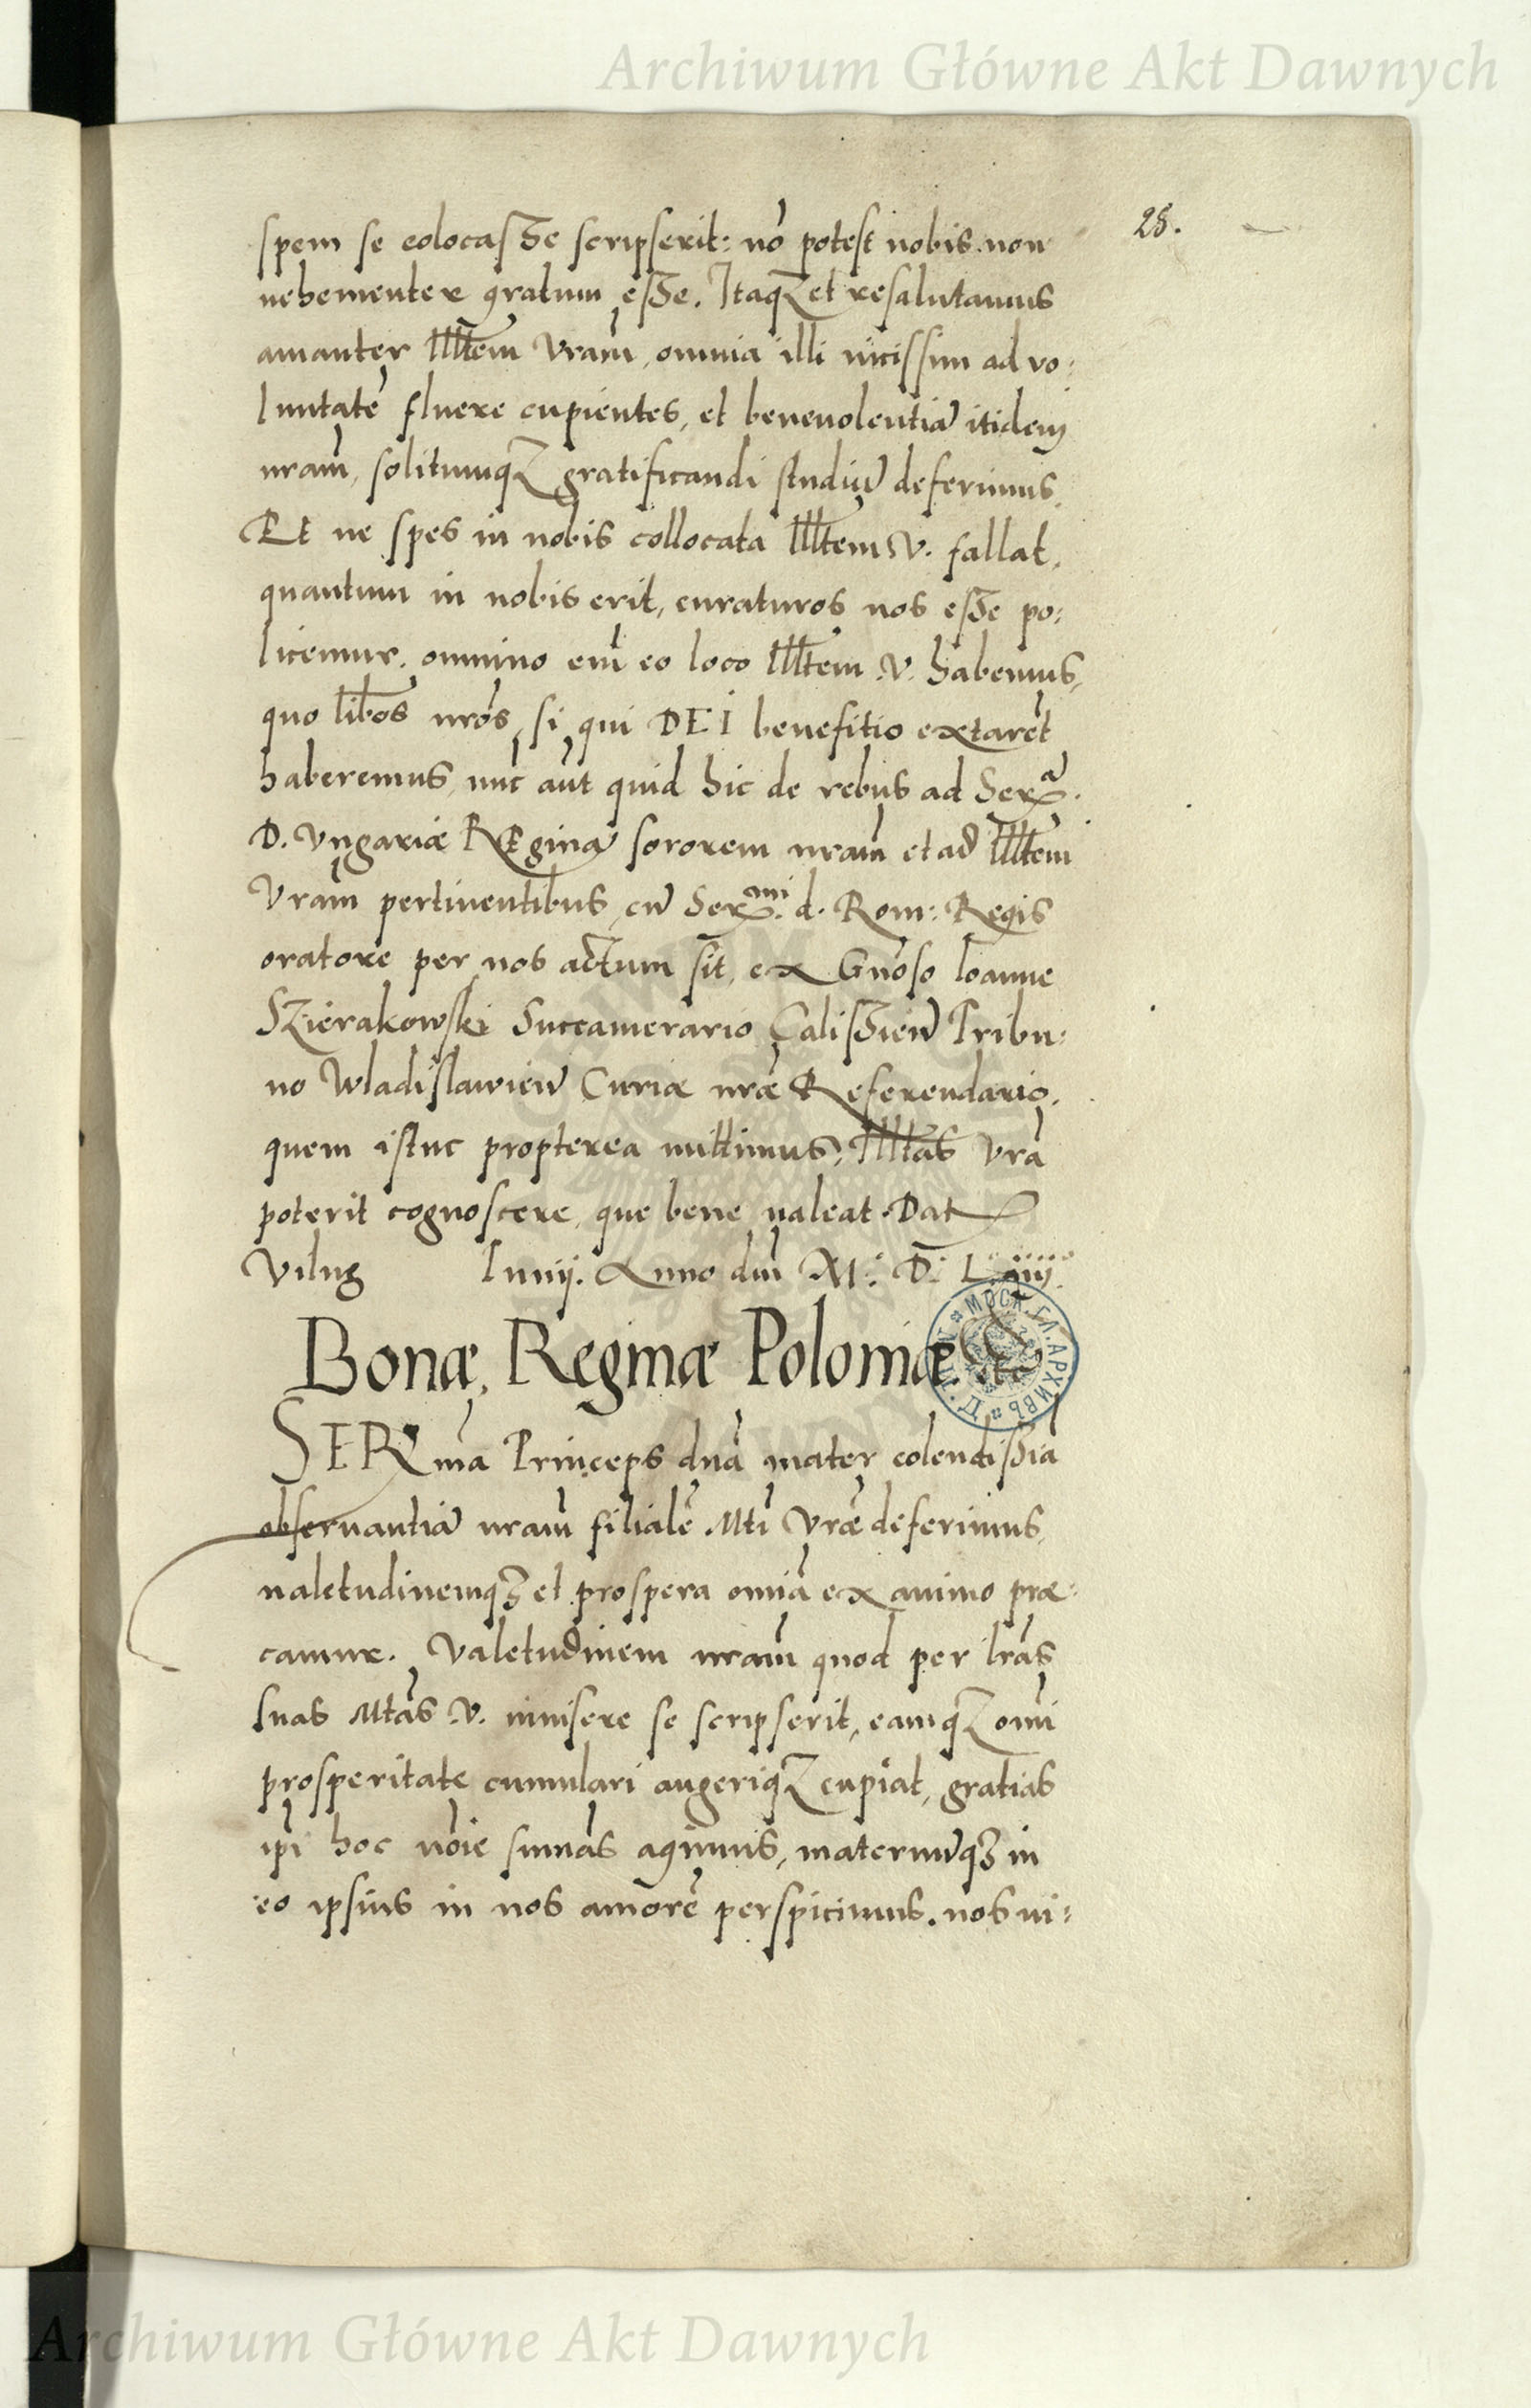 Archiwum Główne Akt Dawnych
28.
spem se colocasse scripserit: nō potest nobis non
uehementer gratum esse. Itaqꝫ et resalutamus
amanter Illtem Vram̄, omnia illi uicissim ad vo:
luntatē fluere cupientes, et beneuolentiā itidem
nram̄, solitumqꝫ gratificandi studiū deferimus.
Et ne spes in nobis collocata Illtem V. fallat,
quantum in nobis erit, curaturos nos esse po:
licemur, omnino em̄ eo loco Illtem V. habemus,
quo lib̄os nr̄os, si qui DEI benefitio extarēt
haberemus, nūc aūt quid hic de rebus ad Serᵃ.
D. Vngariæ REginā sororem nram̄ et ad Illtem
Vram̄ pertinentibus, cū Serᵐⁱ. d. Rom: Regis
oratore per nos actum sit, ex Gn̄oso Ioanne
Szierakowski Succamerario Calissien̄ Tribu:
no Wladislawien̄ Curiæ nrǣ Referendario,
quem istuc propterea mittimus, Illtas Vrā
poterit cognoscere, que bene ualeat. Dat
Vilnę Iunij. Anno dni̅ M.° D.° L.° iiij.°
Bonæ, Reginæ Poloniæ &c
SERma Princeps dnā mater colendissīa
obseruantiā nram̄ filialē Mti̅ Vrǣ deferimus,
ualetudinemqꝫ et prospera omīa ex animo præ:
camur. Valetudinem nram̄ quod per lrās
suas Mtas̄ V. inuisere se scripserit, eamqꝫ omī
prosperitate cumulari augeriqꝫ cupiat, gratias
ipi̅ hoc noīe sum̄as agimus, maternūqꝫ in
eo ipsius in nos amorē perspicimus. nos ui:
МОСК. ГЛ. АРХИВЪ
Archiwum Główne Akt Dawnych